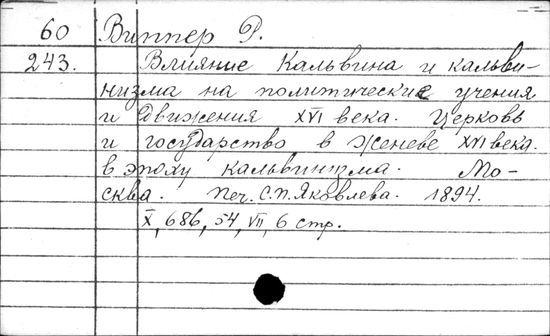 60 Виппер Р.
243. Влияние Кальвина и кальви-
низма на политические учения
и движения XVI века. Церковь
и государство в Женеве XVI века.
в эпоху кальвинизма. Мо-
сква. Печ. С.П. Яковлева. 1894.
X, 686, 54, VII, 6 стр.